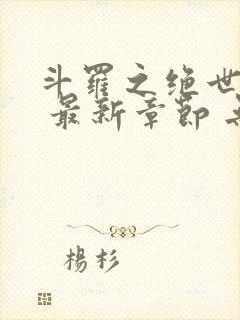 斗羅之绝世
最新章節
楊杉